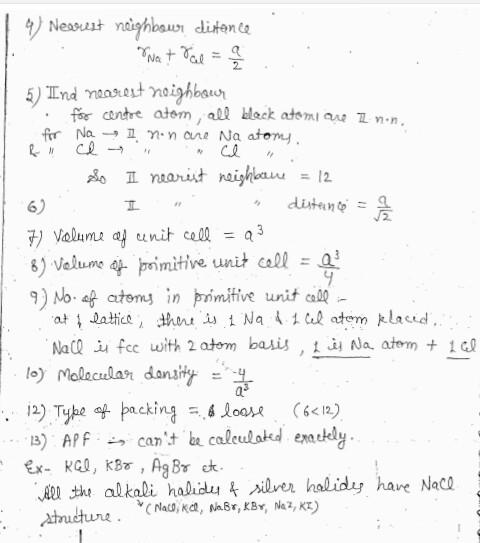 4) Nearest neighbour distance
rNa + rCl = a/2
5) IInd nearest neighbour
· for centre atom, all black atoms are II n.n.
for Na → II n.n are Na atoms.
& " Cl → " " Cl "
So II nearest neighbour = 12
6) II " " distance = a/√2
7) Volume of unit cell = a³
8) Volume of primitive unit cell = a³/4
9) No. of atoms in primitive unit cell :-
at 1 lattice, there is 1 Na & 1 Cl atom placed.
NaCl is fcc with 2 atom basis, 1 is Na atom + 1 Cl
10) Molecular density = 4/a³
12) Type of packing = loose (6<12)
13) APF → can't be calculated exactely.
Ex- KCl, KBr, AgBr etc.
All the alkali halides & silver halides have NaCl
structure. (NaCl, KCl, NaBr, KBr, NaI, KI)